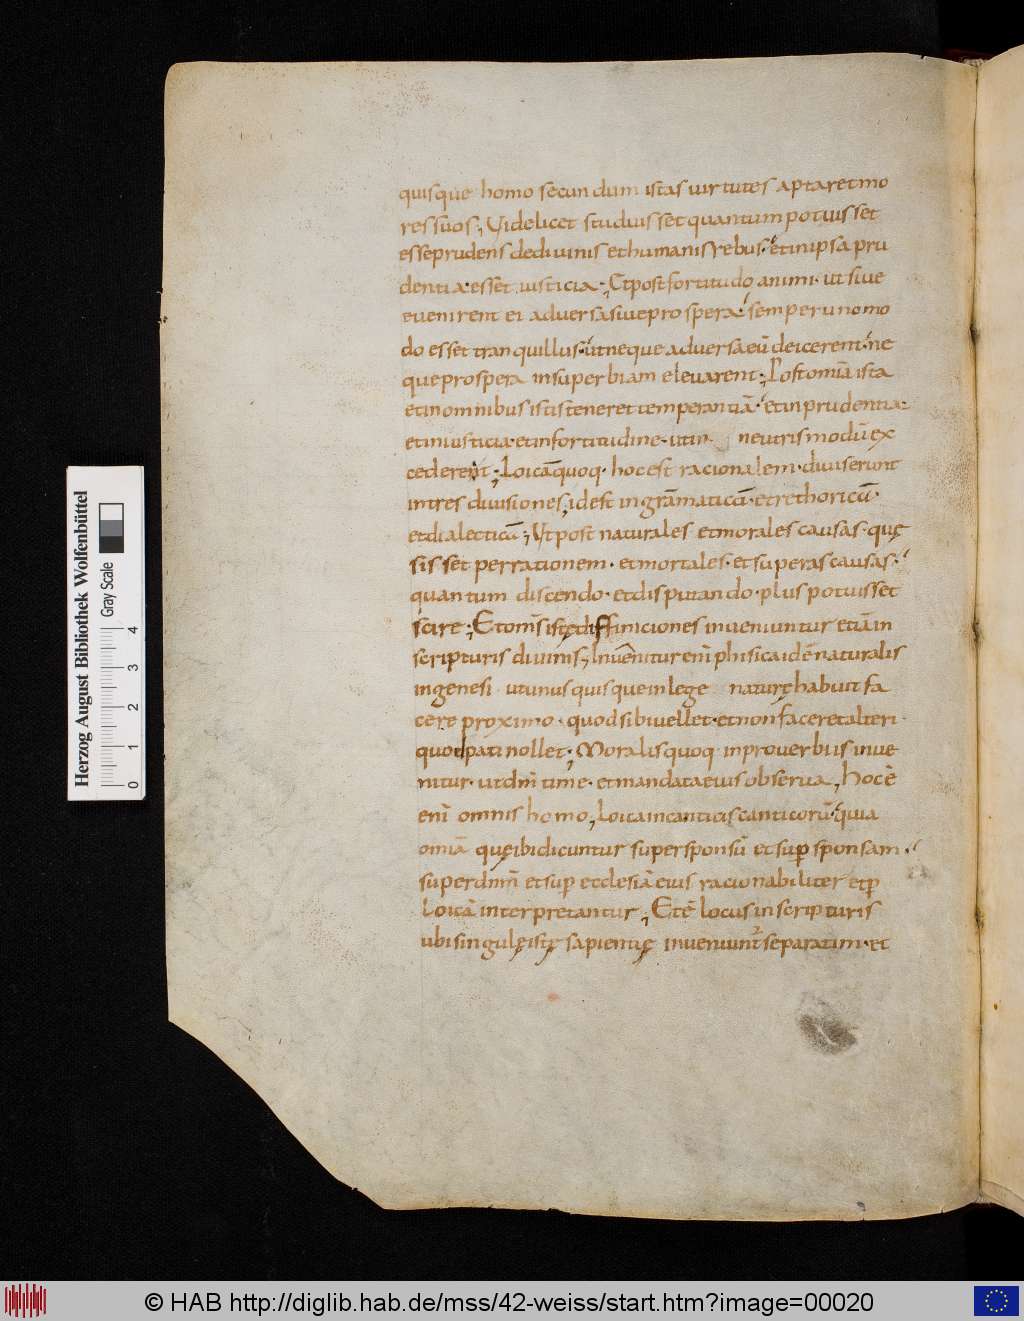 quisque homo secundum istas uirtutes aptaret mo
res suos; Videlicet studuisset quantum potuisset
esse prudens de diuinis et humanis rebus· et in ipsa pru
dentia· esset iusticia; Et post fortitudo animi· ut siue
euenirent ei aduersa siue prospera· semper uno mo
do esset tranquillus· ut neque aduersa eū deicerent· ne
que prospera in superbiam eleuarent; Post omīa ista
et in omnibus istis teneret temperantiā· et in prudentia·
et in iusticia· et in fortitudine· ut in neutris modū ex
cederent; Loicā quoq· hoc est racionalem· diuiserunt
in tres diuisiones, id est in grāmaticā· et rethoricā·
et dialecticā; Vt post naturales et morales causas· quę
sisset per rationem· et mortales· et superas causas·
quantum discendo· et disputando· plus potuisset
scire; Et om̄s istę diffiniciones inueniuntur etiā in
scripturis diuinis; Inuēnitur eni̅ phisica id ē naturalis
in genesi· ut unusquisque in lege naturę habuit fa
cere proximo· quod sibi uellet· et non faceret alteri·
quod pati nollet; Moralis quoq· in prouerbiis inue
nitur· ut dn̄m time· et mandata eius obserua, hoc ē
eni̅ omnis homo, Loica in canticis canticorū· quia
omīa quę ibi dicuntur super sponsū et sup̄ sponsam·
super dnm̄ et sup̄ ecclesiā eius racionabiliter et p̄
loicā interpretantur, Et ē locus in scripturis
ubi singulę istę sapientię inueniunt᷑ separatim· et
Herzog August Bibliothek Wolfenbüttel
Gray Scale
0 1 2 3 4
© HAB http://diglib.hab.de/mss/42-weiss/start.htm?image=00020